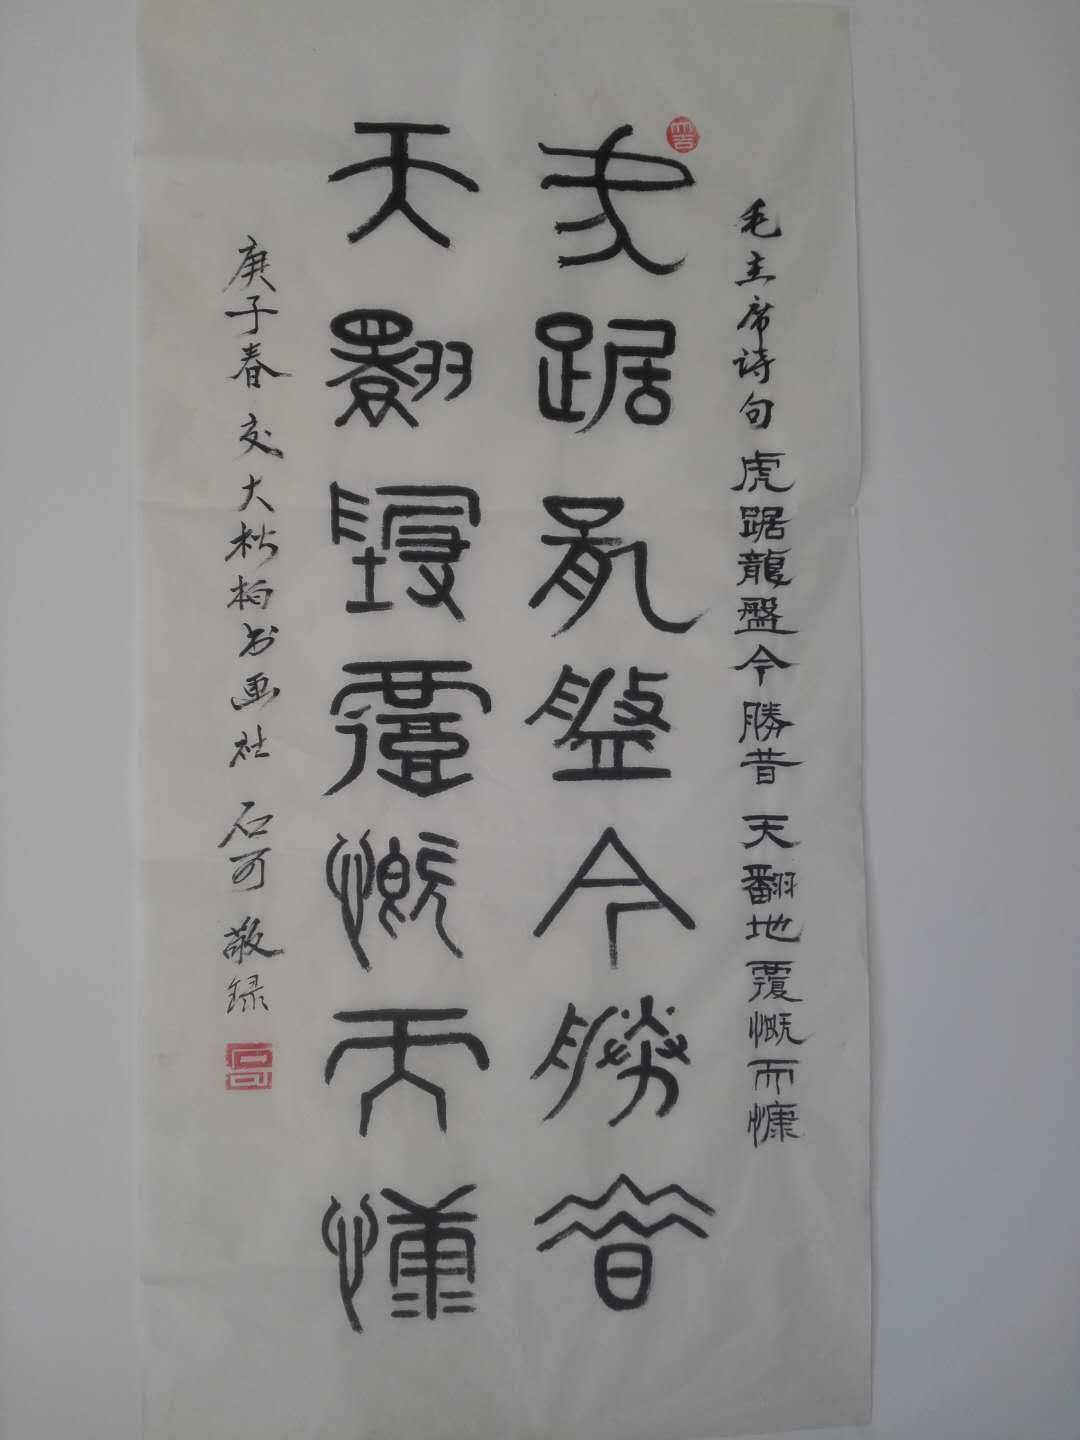 毛主席诗句 虎踞龍盤今勝昔 天翻地覆慨而慷
虎踞龍盤今勝昔
天翻地覆慨而慷
庚子春 交大松柏书画社 石可 敬录
石可